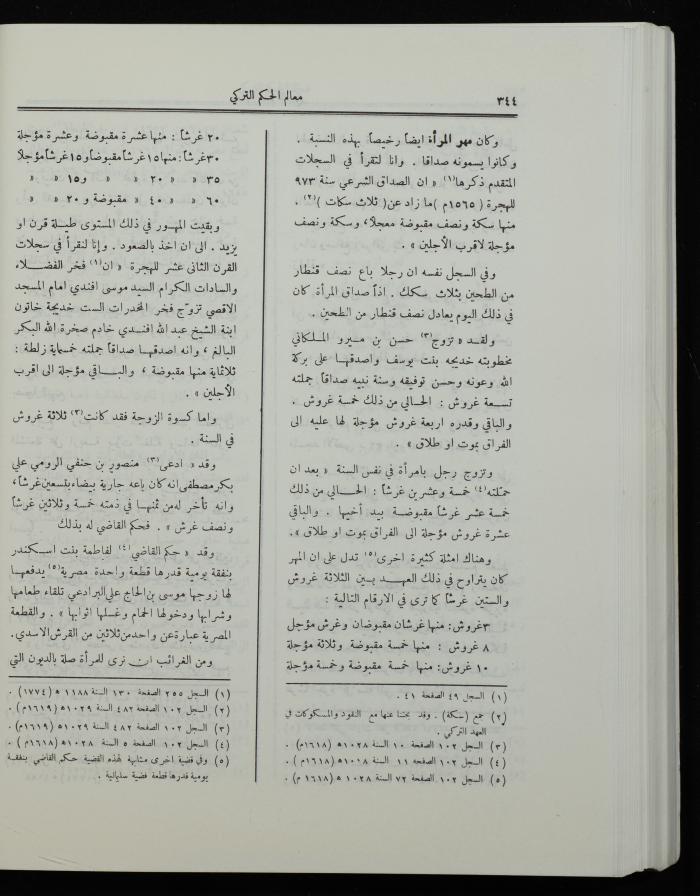 ٣٤٤
معالم الحكم التركي
وكان مهر المرأة ايضاً رخيصاً بهذه النسبة .
وكانوا يسمونه صداقا . وانا لنقرأ في السجلات
المتقدم ذكرها(١) « ان الصداق الشرعي سنة ٩٧٣
للهجرة ( ١٥٦٥م ) ما زاد عن( ثلاث سكات )(٢) .
منها سكة ونصف مقبوضة معجلا، وسكة ونصف
مؤجلة لاقرب الأجلين » .
وفي السجل نفسه ان رجلا باع نصف قنطار
من الطحين بثلاث سكك . اذاً صداق المرأة كان
في ذلك اليوم يعادل نصف قنطار من الطحين .
ولقد « تزوج(٣) حسن بن ميرو الملكاني
مخطوبته خديجه بنت يوسف واصدقها على بركة
الله وعونه وحسن توفيقه وسنة نبيه صداقاً جملته
تسعة غروش : الحالي من ذلك خمسة غروش .
والباقي وقدره اربعة غروش مؤجلة لها عليه الى
الفراق بموت او طلاق » .
وتزوج رجل بامرأة في نفس السنة « بعد ان
حمّلته(٤) خمسة وعشرين غرشاً : الحالي من ذلك
خمسة عشر غرشاً مقبوضة بيد أخيها . والباقي
عشرة غروش مؤجلة الى الفراق بموت او طلاق ».
وهناك امثلة كثيرة اخرى(٥) تدل على ان المهر
كان يتراوح في ذلك العهد بين الثلاثة غروش
والستين غرشاً كما ترى في الارقام التالية :
٣غروش: منها غرشان مقبوضان وغرش مؤجل
٨ غروش : منها خمسة مقبوضة وثلاثة مؤجلة
١٠ غروش: منها خمسة مقبوضة وخمسة مؤجلة
(١) السجل ٤٩ الصفحة ٤١ .
(٢) جمع (سكة) . وقد بحثنا عنها مع النقود والمسكوكات في
العهد التركي .
(٣) السجل ١٠٢ الصفحة ١٠ السنة ١٠٢٨ه‍ (١٦١٨م) .
(٤) السجل ١٠٢ الصفحه ١١ السنة ١٠٢٨ه‍ (١٦١٨م ) .
(٥) السجل ١٠٢ الصفحة ٧٢ السنة ١٠٢٨ ه‍ (١٦١٨ م) .
٢٠ غرشاً : منها عشرة مقبوضة وعشرة مؤجلة
٣٠غرشاً: منها١٥غرشاًمقبوضاو١٥غرشاًمؤجلاً
٣٥ « « ٢٠ « « و١٥ « «
٦٠ « « ٤٠ مقبوضة و ٢٠ « «
وبقيت المهور في ذلك المستوى طيلة قرن او
يزيد . الى ان اخذ بالصعود . وإنا لنقرأ في سجلات
القرن الثانى عشر للهجرة « ان(١) فخر الفضلاء
والسادات الكرام السيد موسى افندي امام المسجد
الاقصى تزوّج فخر المخدرات الست خديجة خاتون
ابنة الشيخ عبد الله افندي خادم صخرة الله البكر
البالغ ، وانه اصدقها صداقاً جملته خمسماية زلطة :
ثلاثماية منها مقبوضة ، والباقي مؤجلة الى اقرب
الأجلين » .
واما كسوة الزوجة فقد كانت(٢) ثلاثة غروش
في السنة .
وقد « ادعى(٣) منصور بن حنفي الرومي علي
بكر مصطفى انه كان باعه جارية بيضاء بتسعين غرشاً،
وانه تأخر له من ثمنها في ذمته خمسة وثلاثين غرشاً
ونصف غرش » . فحكم القاضي له بذلك
وقد « حكم القاضي(٤) لفاطمة بنت اسكندر
بنفقة يومية قدرها قطعة واحدة مصرية(٥) يدفعها
لها زوجها موسى بن الحاج علي البرادعي تلقاء طعامها
وشرابها ودخولها الحمام وغسلها اثوابها » . والقطعة
المصرية عبارة عن واحد من ثلاثين من القرش الاسدي.
ومن الغرائب ان نرى للمرأة صلة بالديون التي
(١) السجل ٢٥٥ الصفحة ١٣٠ السنة ١١٨٨ ه‍ (١٧٧٤) .
(٢) السجل ١٠٢ الصفحة ٤٨٢ السنة ١٠٢٩ه‍ (١٦١٩م) .
(٣) السجل ١٠٢ الصفحة ٤٨٢ السنة ١٠٢٩ه‍ (١٦١٩م) .
(٤) السجل ١٠٢ الصفحة ٥ السنة ١٠٢٨ ه‍ (١٦١٨م ) .
(٥) وفي قضية اخرى مشابهة لهذه القضية حكم القاضي بنفقة
يومية قدرها قطعة فضية سليمانية .